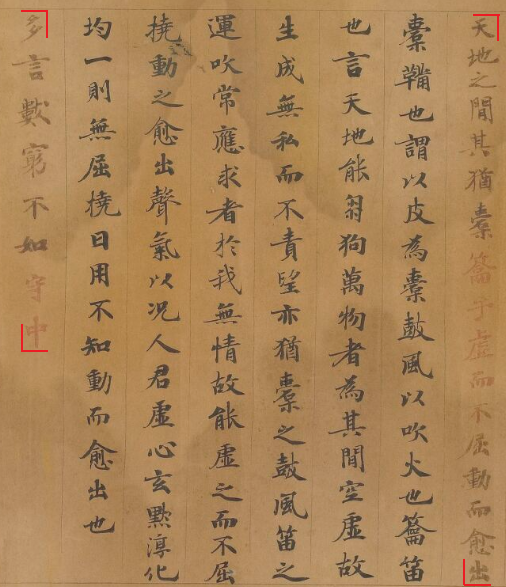 天地之間其猶橐籥乎虛而不屈動而愈出
橐鞴也謂以皮為橐鼓風以吹火也籥笛
也言天地能芻狗萬物者為其間空虛故
生成無私而不責望亦猶橐之鼓風笛之
運吹常應求者於我無情故能虛之而不屈
撓動之愈出聲氣以況人君虛心玄默淳化
均一則無屈撓日用不知動而愈出也
多言數窮不如守中